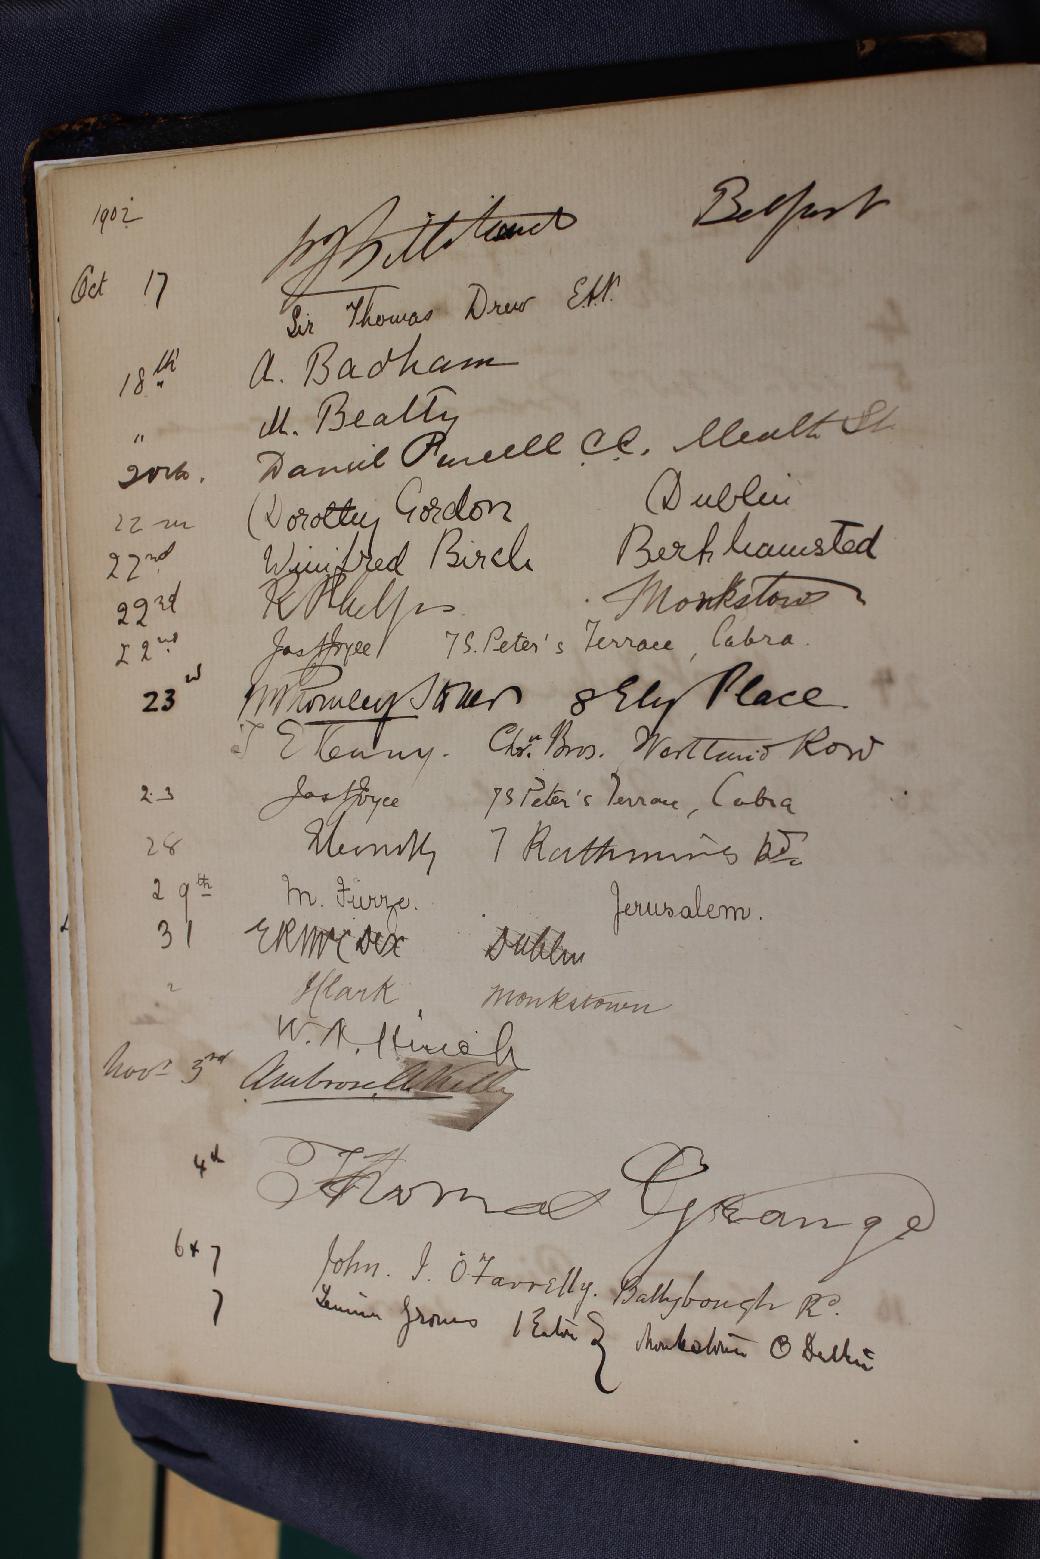 1902
Belfast
Oct 17
Sir Thomas Drew
18th A. Badham
" M. Beatty
20th. Daniel Purcell C.C. Meath St
22 Dorothy Gordon Dublin
22nd Winifred Birch Berkhamsted
22nd K Phelps Monkstown
22nd Jas Joyce 7 S. Peter's Terrace, Cabra.
23 8 Ely Place
Chr. Bros. Westland Row
23 Jas Joyce 7 S Peter's Terrace, Cabra
28 7 Rathmines Rd.
29th M. Furze. Jerusalem.
31 E R McC Dix Dublin
" Clark Monkstown
W. A. Hinch
Nov. 3rd Ambrose Kelly
4th Thomas Grange
6 & 7 John. J. O'Farrelly. Ballybough Rd.
7 Groves 1 Eaton Monkstown Co Dublin